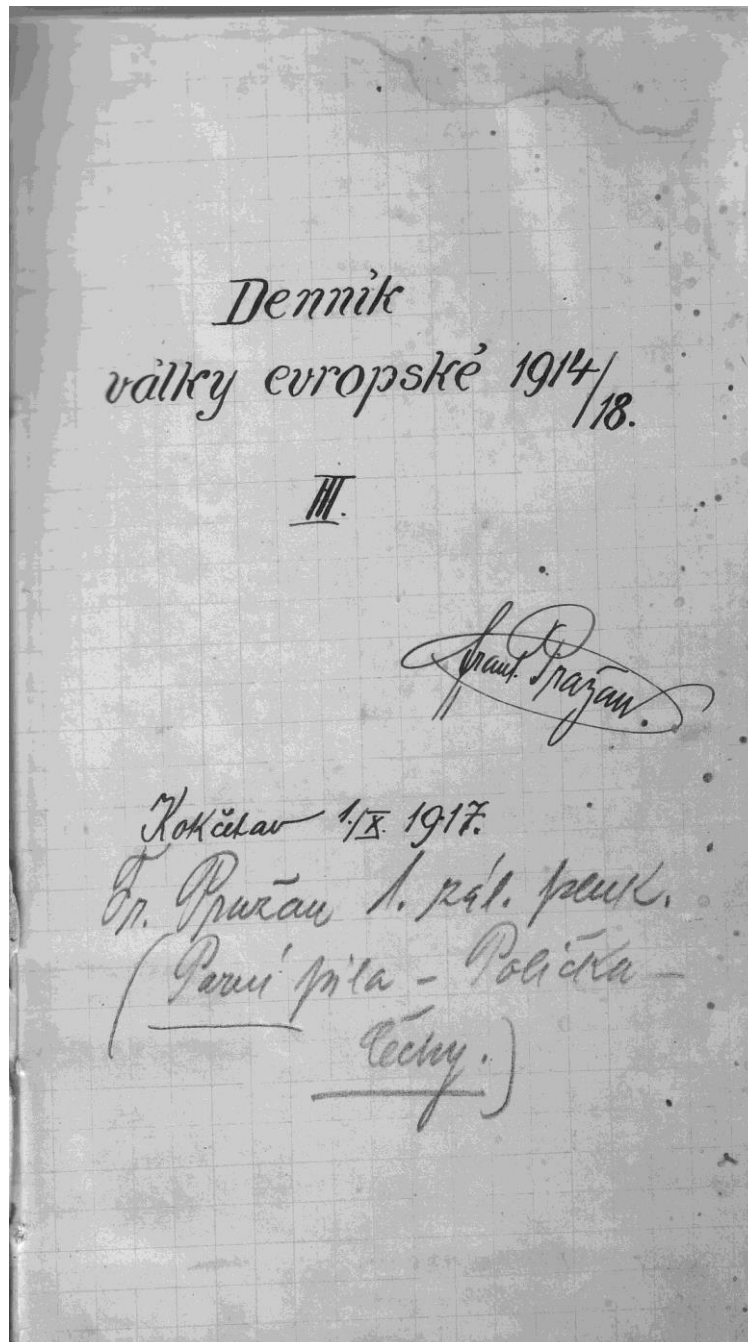 Denník
války evropské 1914/18.
III.
Frant. Pražan.
Kokčetav 1./X. 1917.
Fr. Pražan 1. zál. peuk.
(Parní pila – Polička –
Čechy.)